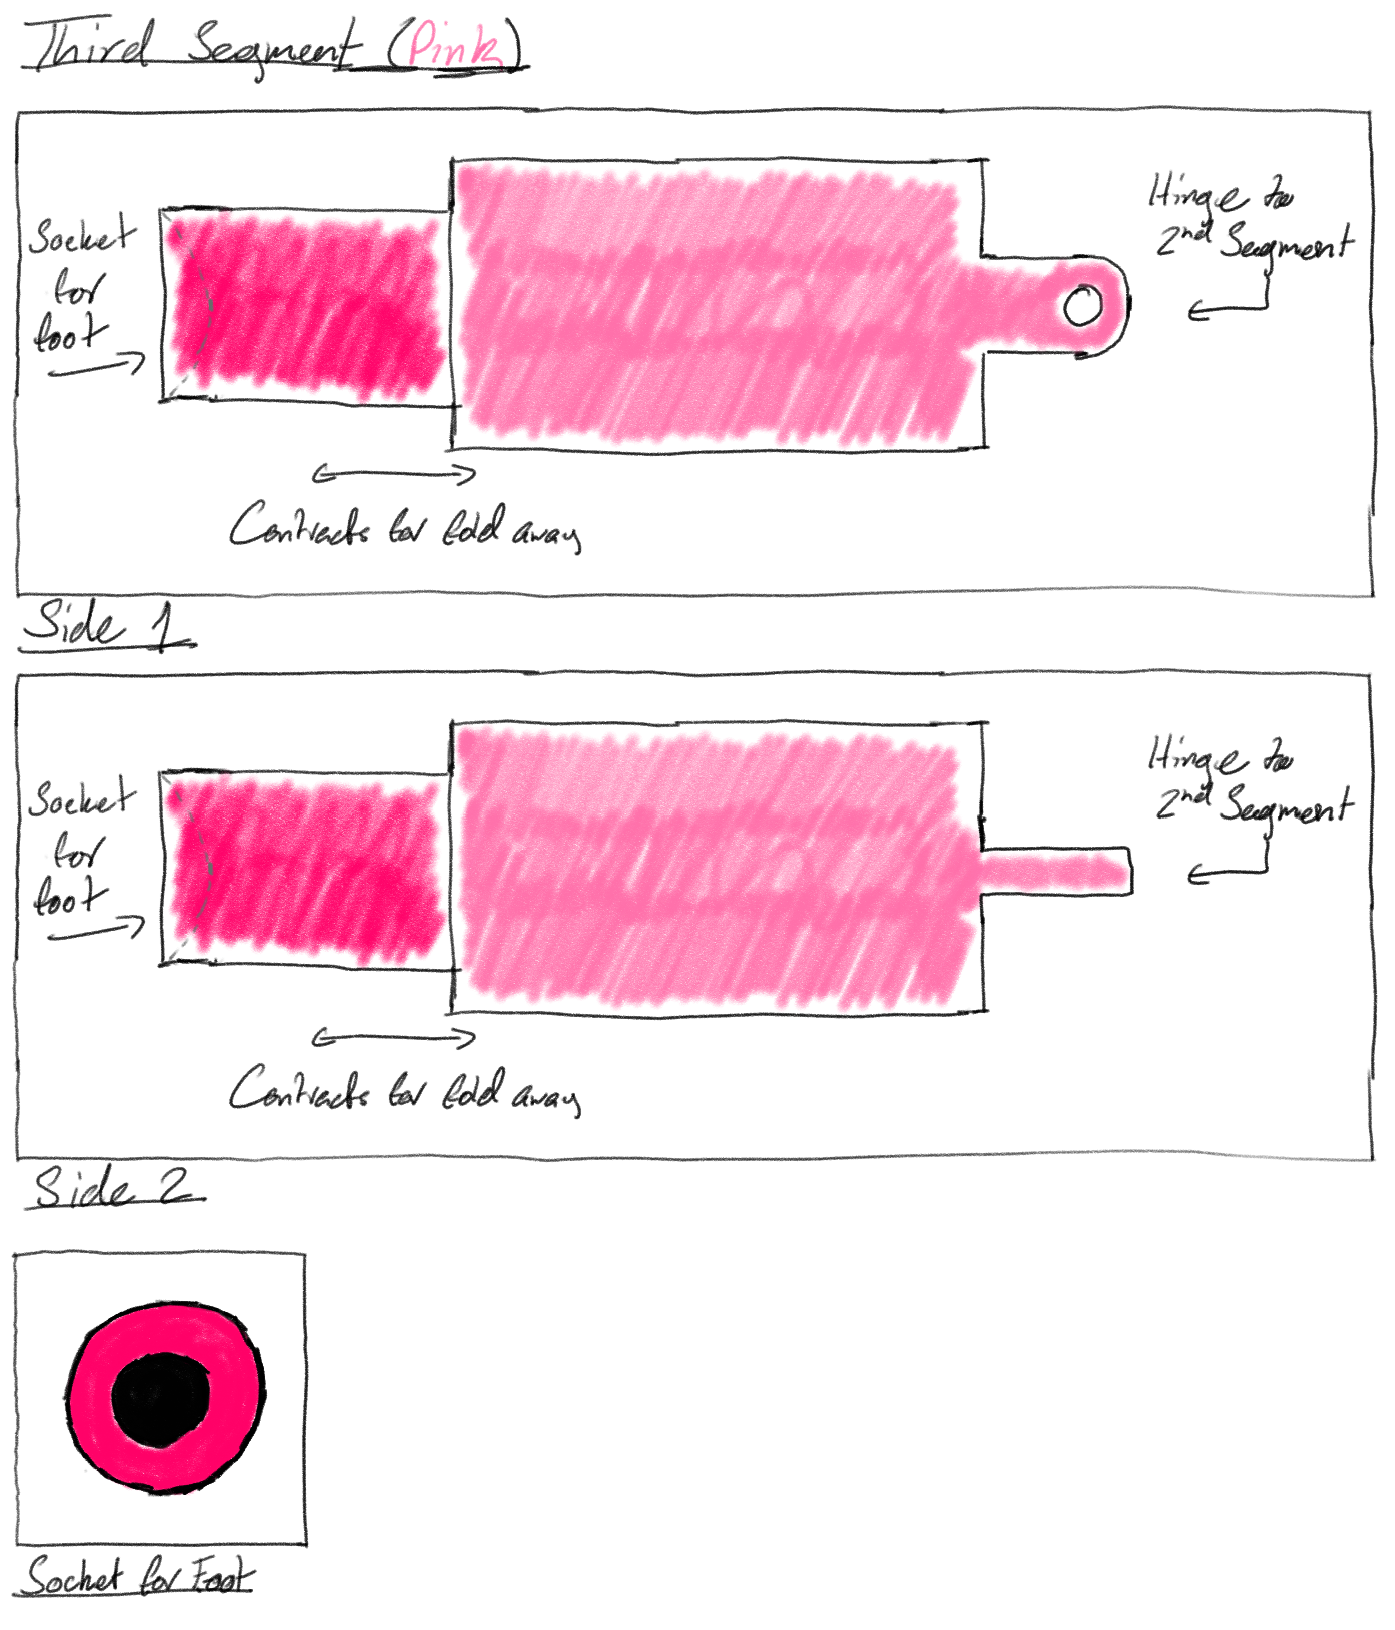 Third Segment (Pink)
Socket
for
foot
Hinge to
2nd Segment
Contracts for fold away
Side 1
Socket
for
foot
Hinge to
2nd Segment
Contracts for fold away
Side 2
Socket for Foot